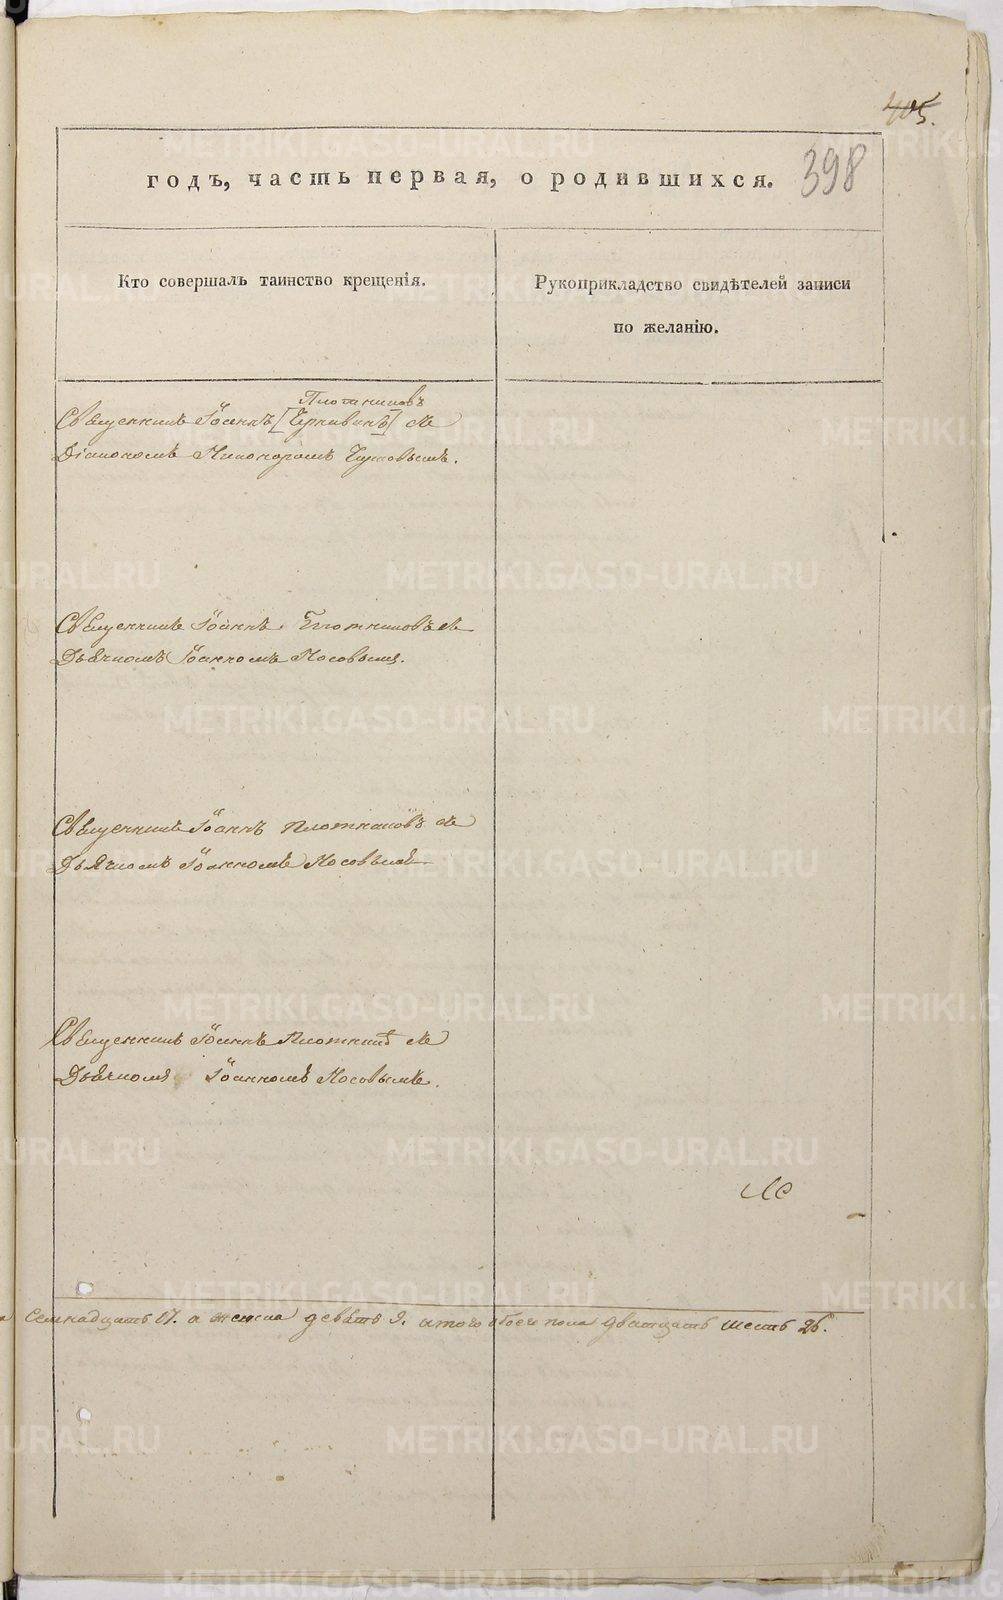 405.
398
годъ, часть первая, о родившихся.
Кто совершалъ таинство крещенія.
Рукоприкладство свидѣтелей записи
по желанію.
Плотниковъ
Священникъ Іоаннъ [ ] съ
Діакономъ Никаноромъ
Священникъ Іоаннъ Плотниковъ съ
Дьячкомъ Іоанномъ Носовымъ.
Священникъ Іоаннъ Плотниковъ съ
Дьячкомъ Іоанномъ Носовымъ
Священникъ Іоаннъ Плотник съ
Дьячкомъ Іоанномъ Носовымъ.
семнадцать 17. а женска девять 9. итого обоего пола дватцать шесть 26.
METRIKI.GASO-URAL.RU